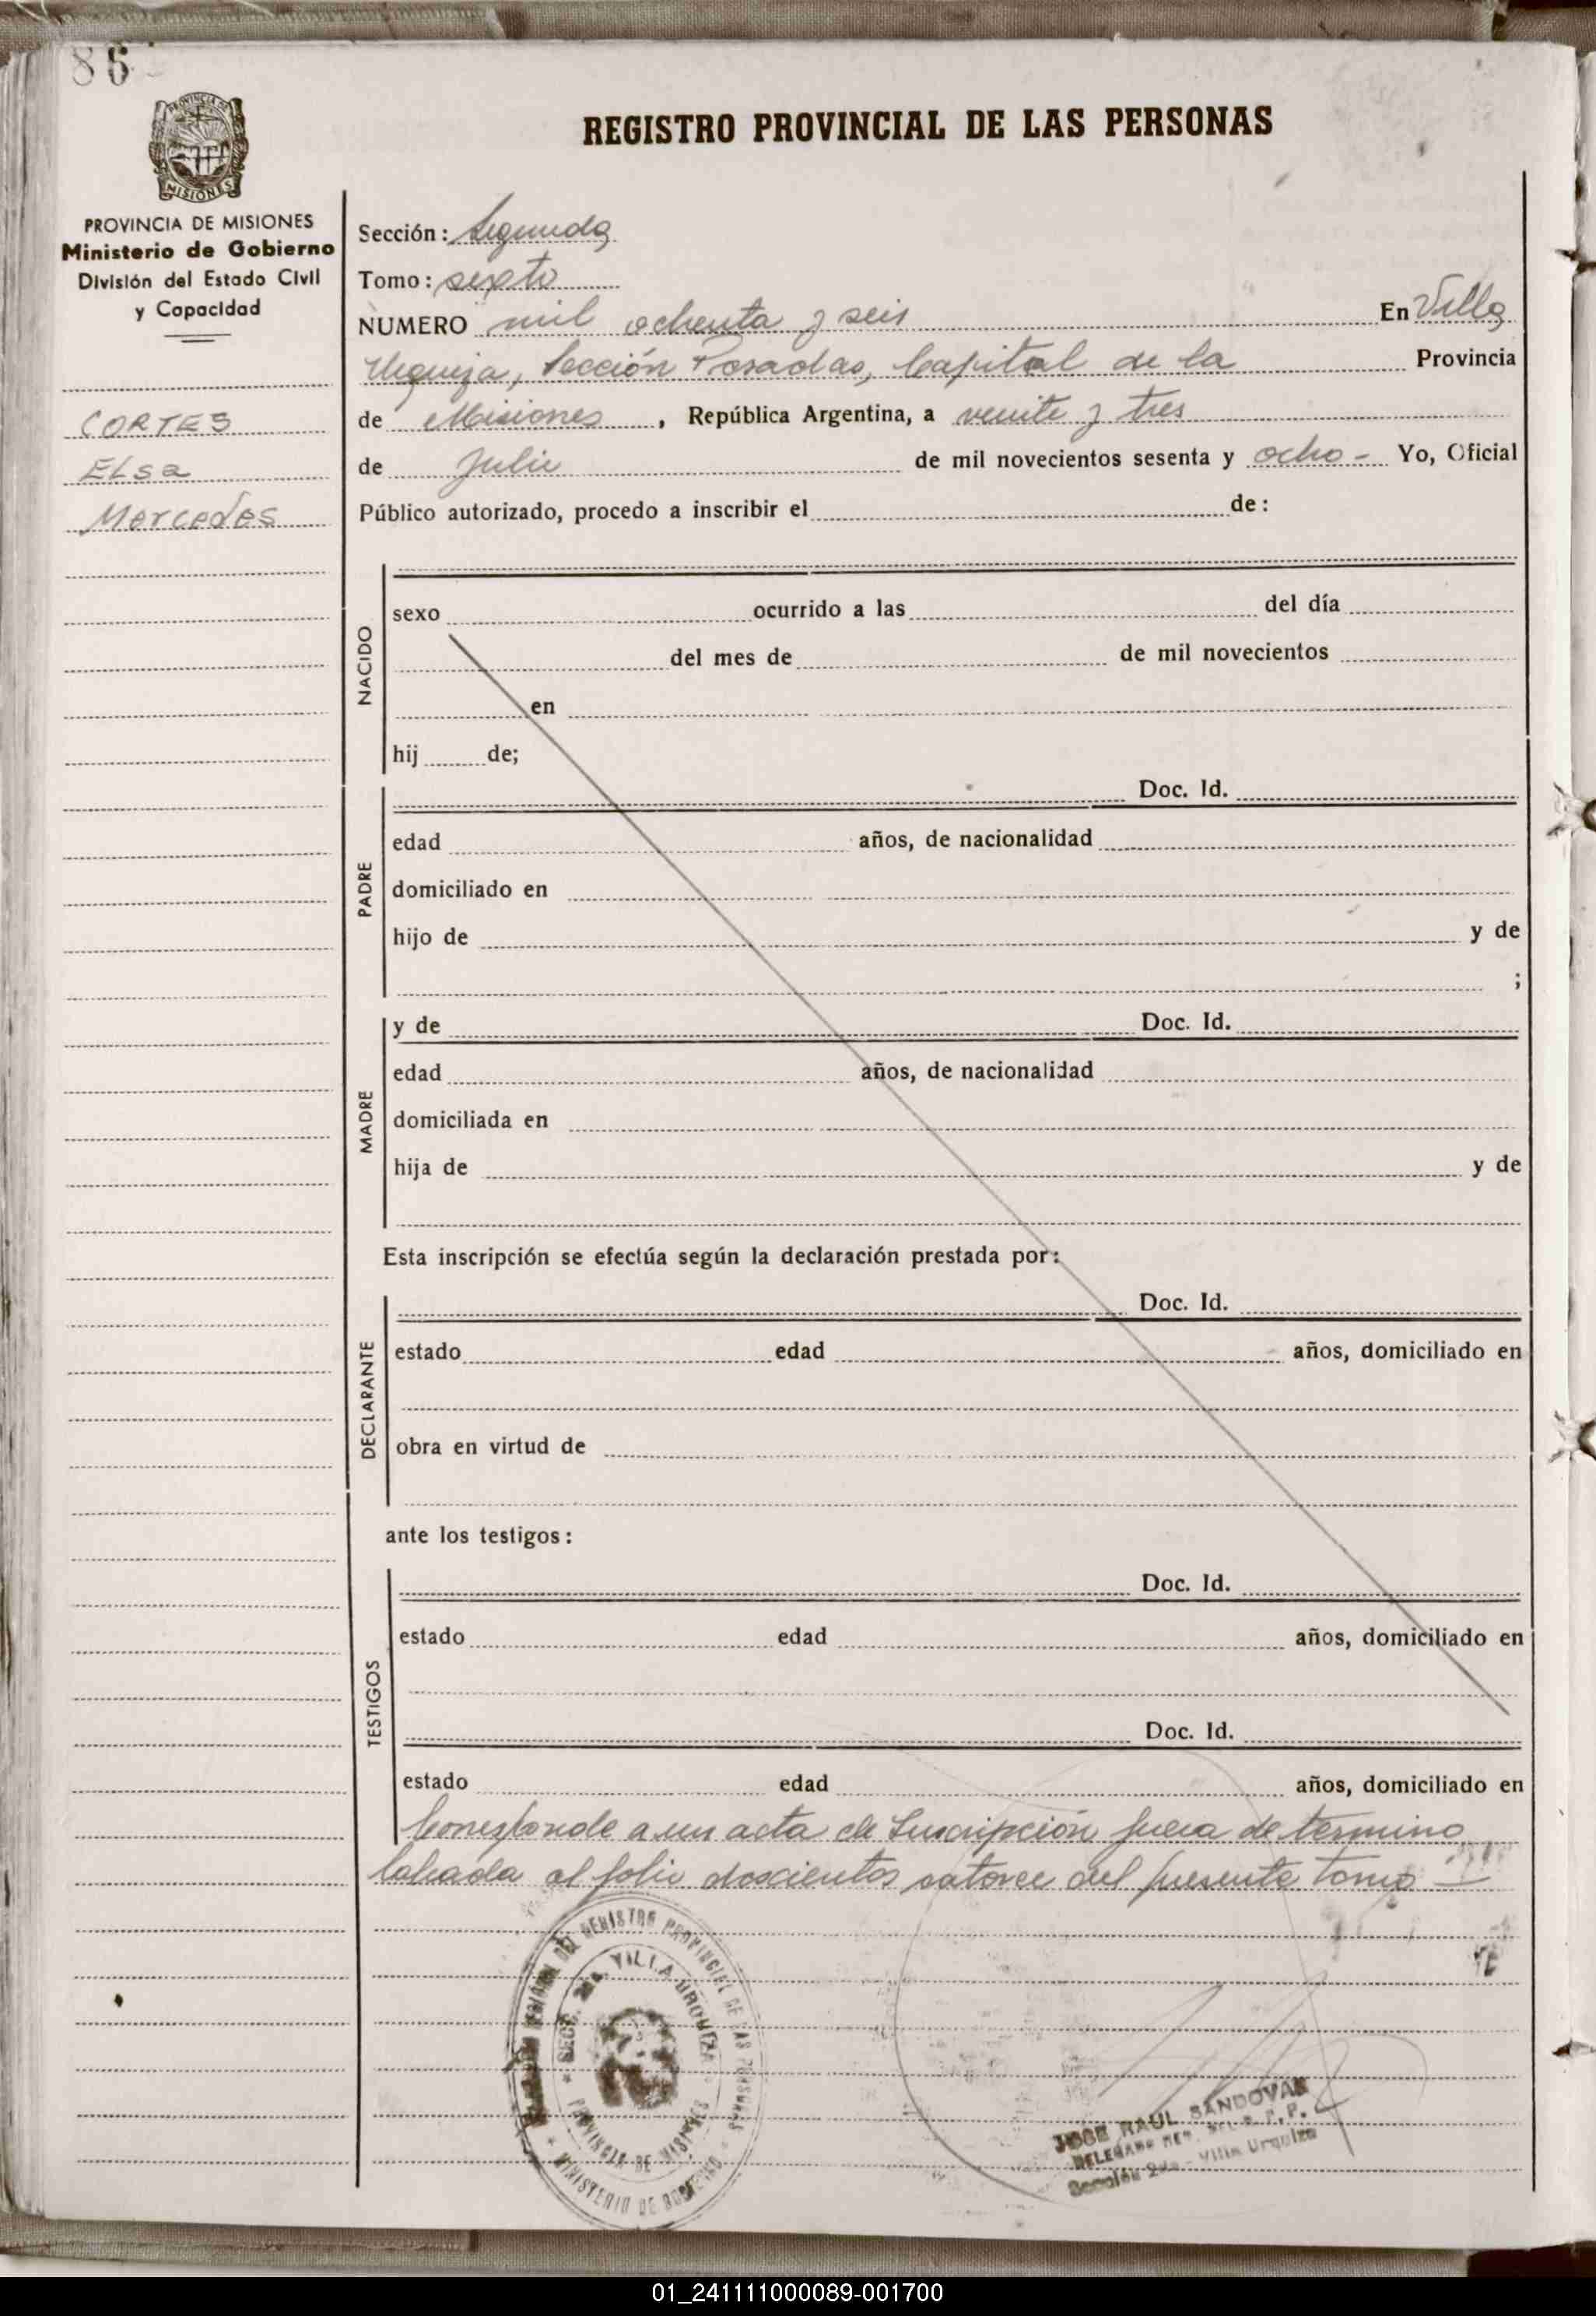 86
REGISTRO PROVINCIAL DE LAS PERSONAS
PROVINCIA DE MISIONES
Ministerio de Gobierno
División del Estado Civil
y Capacidad
CORTES
ELsa
Mercedes
Sección: Segunda
Tomo: sexto
NUMERO mil ochenta y seis En Villa
Urquiza, Sección Posadas, Capital de la Provincia
de Misiones, República Argentina, a veinte y tres
de Julio de mil novecientos sesenta y ocho - Yo, Oficial
Público autorizado, procedo a inscribir el de:
NACIDO
sexo ocurrido a las del día
del mes de de mil novecientos
en
hij de;
PADRE
Doc. Id.
edad años, de nacionalidad
domiciliado en
hijo de y de
;
MADRE
y de Doc. Id.
edad años, de nacionalidad
domiciliada en
hija de y de
Esta inscripción se efectúa según la declaración prestada por:
DECLARANTE
Doc. Id.
estado edad años, domiciliado en
obra en virtud de
ante los testigos:
TESTIGOS
Doc. Id.
estado edad años, domiciliado en
Doc. Id.
estado edad años, domiciliado en
Corresponde a un acta de Inscripción fuera de termino
labrada al folio doscientos catorce del presente tomo
DEL REGISTRO PROVINCIAL DE LAS PERSONAS
SECC. 2da. VILLA URQUIZA
PROVINCIA DE MISIONES
MINISTERIO DE GOBIERNO
JOSE RAUL SANDOVAL
Sección 2da - Villa Urquiza
01_241111000089-001700